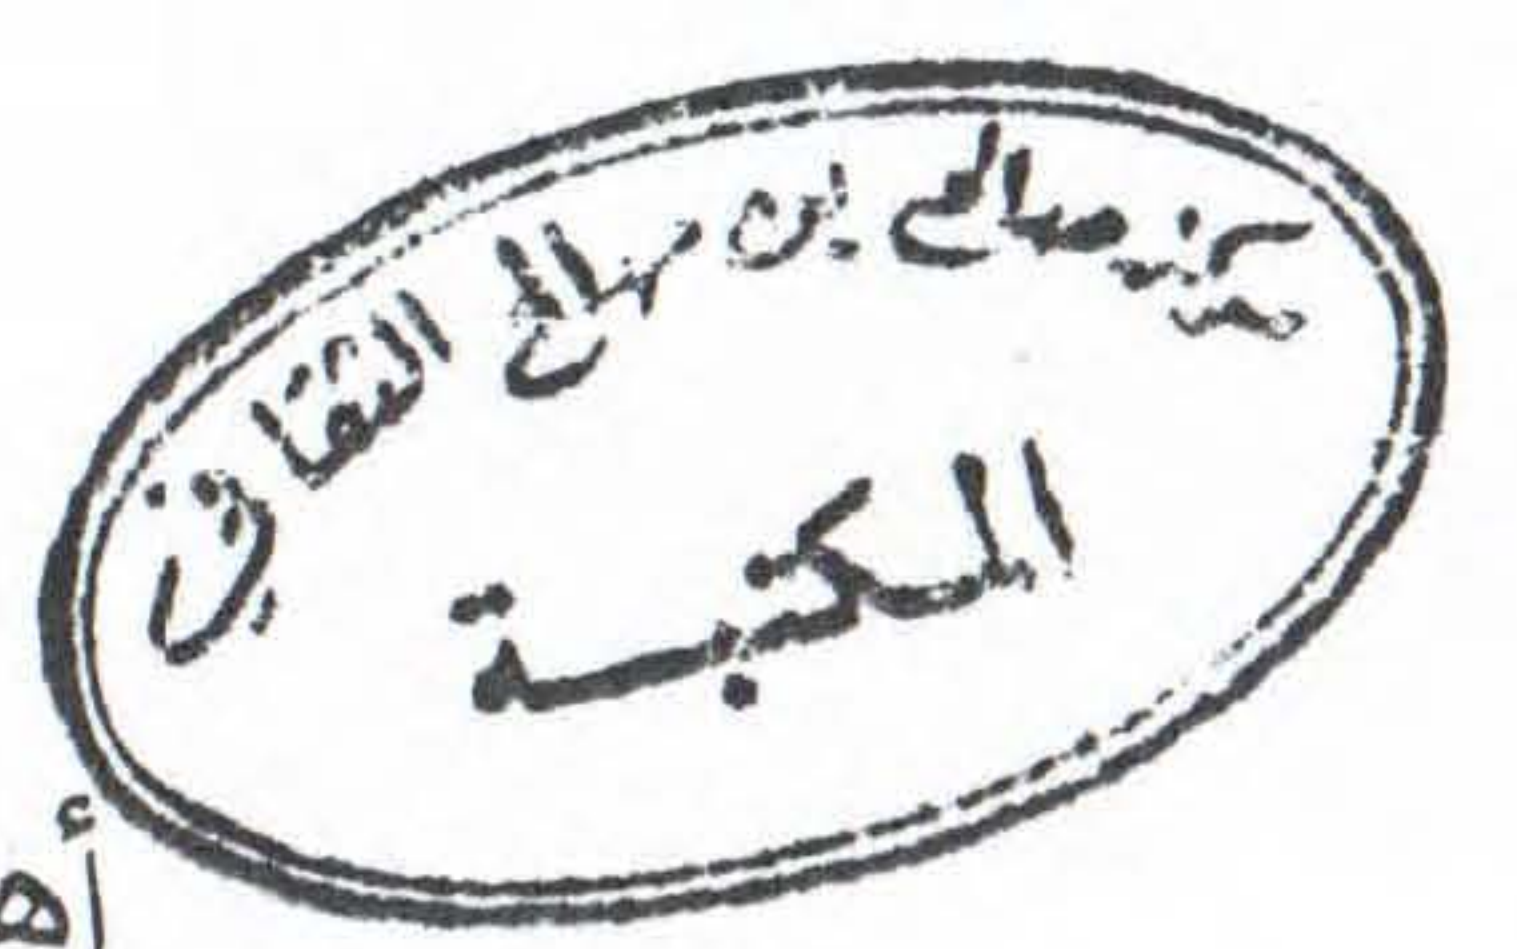 مركز صالح بن صالح الثقافي
المكتبة